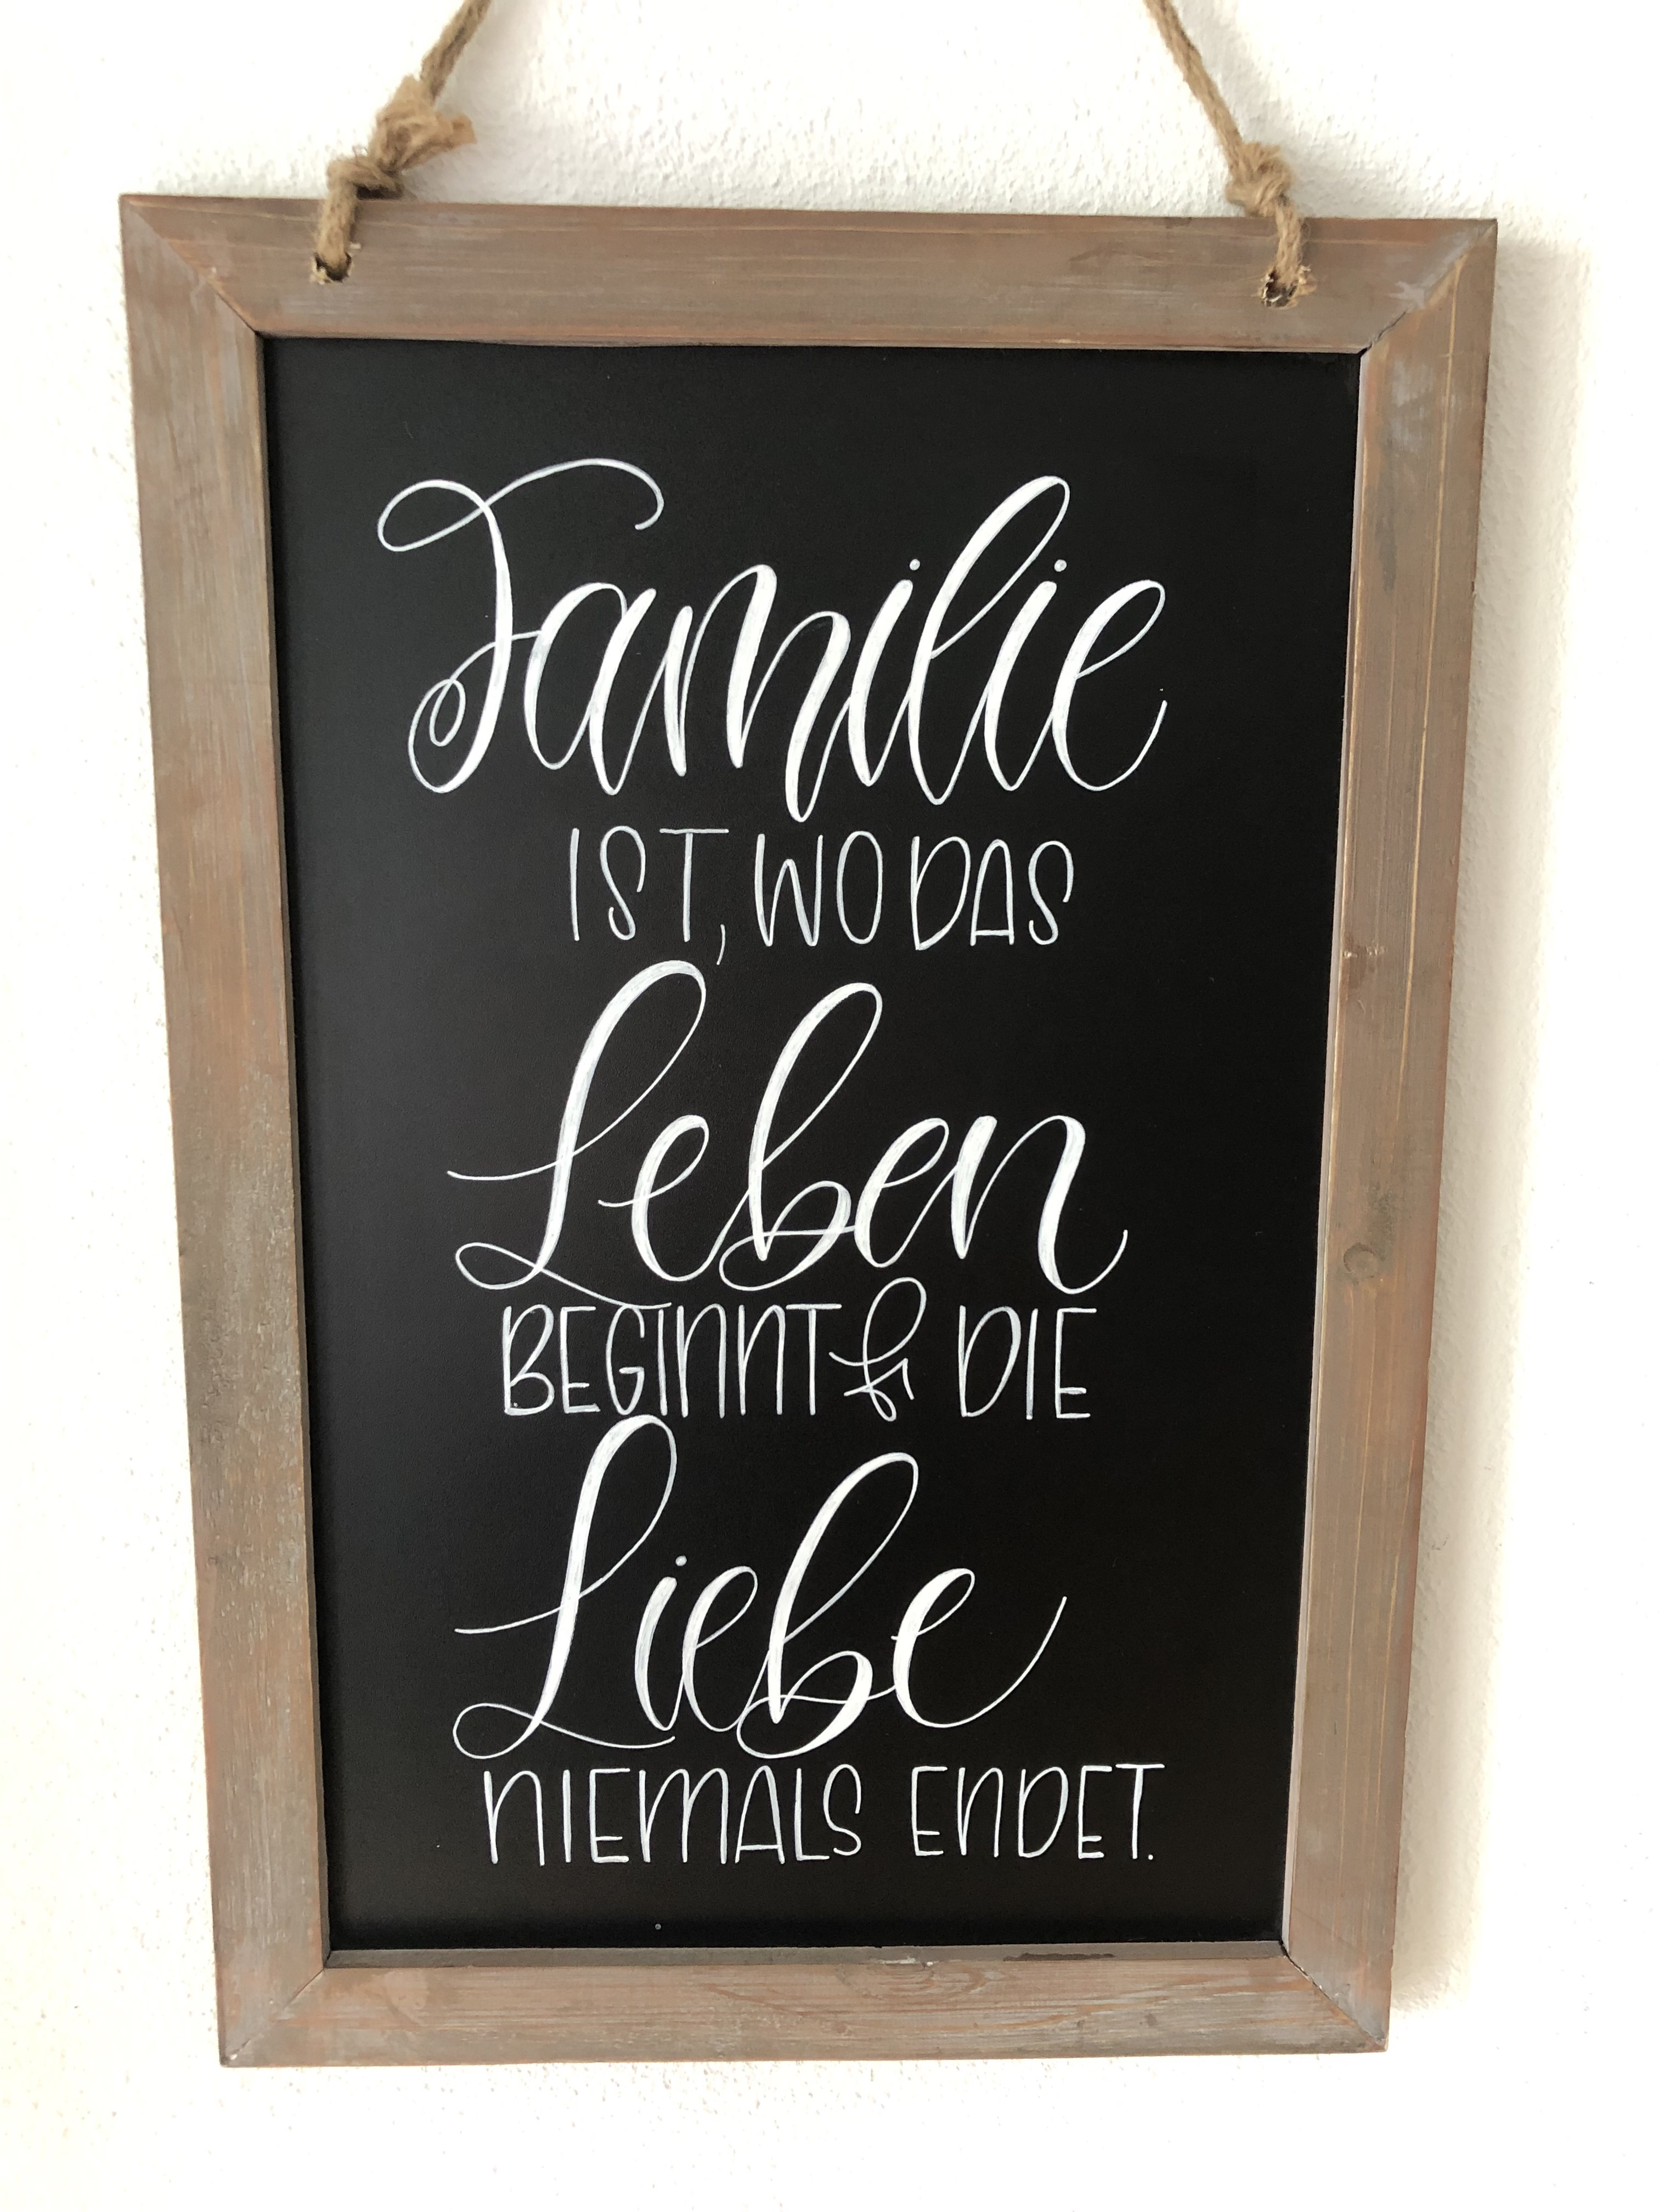 Familie
IST, WO DAS
Leben
BEGINNT & DIE
Liebe
NIEMALS ENDET.